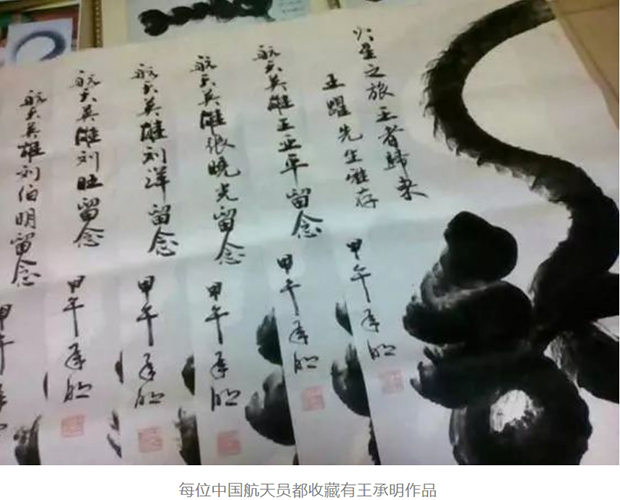 火星之旅王者歸来
王躍先生雅存
甲午承明
航天英雄王亚平留念
甲午承明
航天英雄张晓光留念
甲午承明
航天英雄刘洋留念
甲午承明
航天英雄刘旺留念
甲午承明
航天英雄刘伯明留念
甲午承明
每位中国航天员都收藏有王承明作品